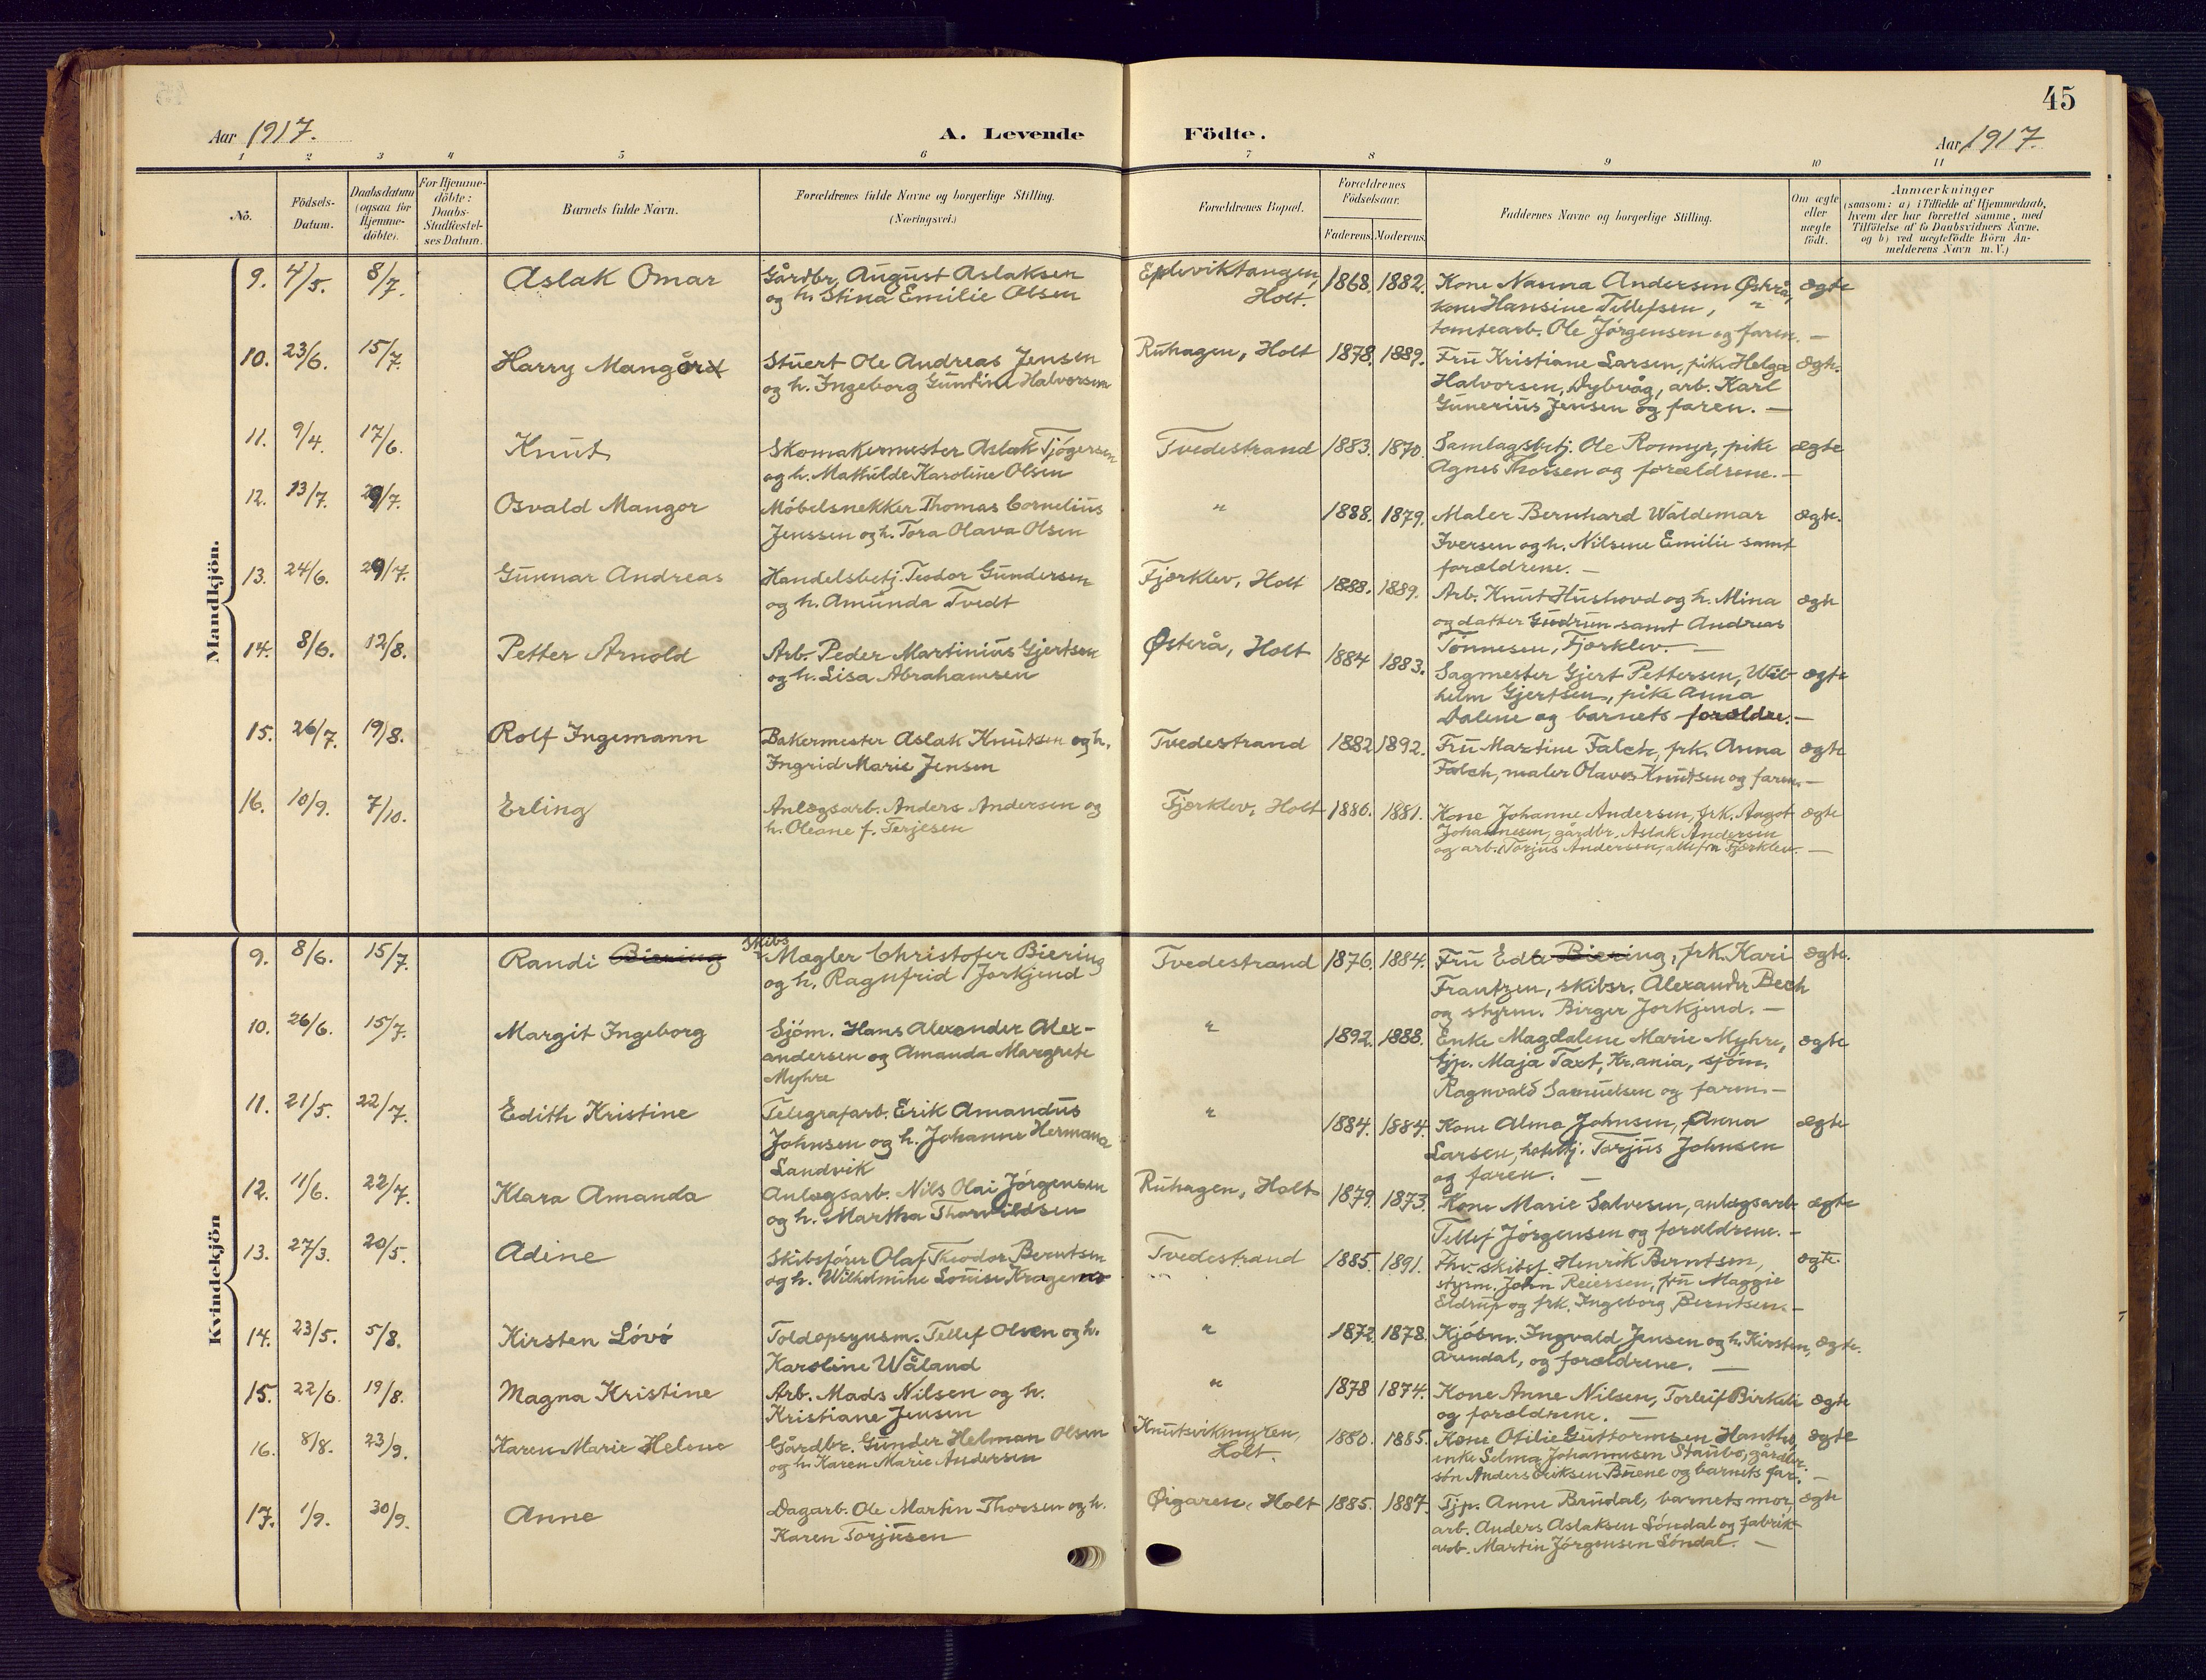 45
Aar 1917.
A. Levende Födte.
Aar 1917.
1 2 3 4 5 6 7 8 9 10 11
Nô.
Födsels-Datum.
Daabsdatum (ogsaa for Hjemme-döbte).
For Hjemme-döbte: Daabs-Stadfæstel-ses Datum.
Barnets fulde Navn.
Forældrenes fulde Navne og borgerlige Stilling.
(Næringsvei.)
Forældrenes Bopæl.
Forældrenes Födselsaar.
Faderens. Moderens.
Faddernes Navne og borgerlige Stilling.
Om ægte eller uægte födt.
Anmærkninger
(saasom: a) i Tilfælde af Hjemmedaab, hvem der har forrettet samme, med Tilföielse af to Daabsvidners Navne, og b) ved uægtefödte Börn An-melderens Navn m. V.)
Mandkjön.
9. 4/5. 8/7. Aslak Omar
Gårdbr. August Aslaksen
og h. Stina Emilie Olsen
Epleviktangen,
Holt.
1868. 1882.
Kone Nanna Andersen Østerå,
kone Hansine Tellefsen, "
tomtearb. Ole Jörgensen og faren. —
ægte
10. 23/6. 15/7. Harry Mangård
Stuert Ole Andreas Jensen
og h. Ingeborg Gundine Halvorsen
Rühagen, Holt
1878. 1889.
Frü Kristiane Larsen, pike Helga
Halvorsen, Dybvåg, arb. Karl
Günerius Jensen og faren. —
ægte.
11. 9/4. 17/6. Knut
Skomakermester Aslak Tjögersen
og h. Mathilde Karoline Olsen
Tvedestrand
1883. 1870.
Samlagsbetj. Ole Romyr, pike
Agnes Thorsen og forældrene. —
ægte
12. 13/7. 29/7. Osvald Mangor
Möbelsnekker Thomas Cornelius
Jenssen og h. Tora Olava Olsen
"
1888. 1879.
Maler Bernhard Waldemar
Iversen og h. Nilsene Emilie samt
forældrene. —
ægte.
13. 24/6. 29/7. Gunnar Andreas
Handelsbetj. Teodor Gundersen
og h. Amunda Tvedt
Fjærklev, Holt
1888. 1889.
Arb. Knut Hushovd og h. Mina
og datter Gudrun samt Andreas
Tönnesen, Fjærklev. —
ægte
14. 8/6. 12/8. Petter Arnold
Arb. Peder Martinius Gjertsen
og h. Lisa Abrahamsen
Østerå, Holt
1884 1883.
Sagmester Gjert Pettersen, Wil-
helm Gjertsen, pike Anna
Dalene og barnets forældre. —
ægte
15. 26/7. 19/8. Rolf Ingemann
Bakermester Aslak Knutsen og h.
Ingrid Marie Jensen
Tvedestrand
1882 1892.
Frü Martine Falch, frk. Anna
Falch, maler Olaves Knutsen og faren. —
ægte
16. 10/9. 7/10. Erling
Anlægsarb. Anders Andersen og
h. Oleane f. Terjesen
Fjærklev, Holt
1886. 1881.
Kone Johanne Andersen, frk. Aagot
Johannesen, gårdbr. Aslak Andersen
og arb. Torjus Andersen, alle fra Fjærklev. —
ægte
Kvindekjön
9. 8/6. 15/7. Randi Biering
Skibs
Mægler Christofer Biering
og h. Ragnfrid Jorkjend
Tvedestrand
1876. 1884.
Frü Edle Biering, frk. Kari
Frantzen, skibsr. Alexander Bech
og styrm. Birger Jorkjend. —
ægte.
10. 26/6. 15/7. Margit Ingeborg
Sjöm. Hans Alexander Alex-
andersen og Amanda Margrete
Myhre
"
1892. 1888.
Enke Magdalene Marie Myhre,
tjp. Maja Taxt, Kr.ania, sjöm.
Ragnvald Samuelsen og faren. —
ægte
11. 21/5. 22/7. Edith Kristine
Telegrafarb. Erik Amandus
Johnsen og h. Johanne Hermana
Sandvik
"
1884. 1884.
Kone Alma Johnsen, Anna
Larsen, Torjus Johnsen
og faren. —
ægte
12. 11/6. 22/7. Klara Amanda
Anlægsarb. Nils Olai Jörgensen
og h. Martha Thorvildsen
Rühagen, Holt
1879. 1873.
Kone Marie Salvesen, anlægsarb.
Tellef Jörgensen og forældrene. —
ægte
13. 27/3. 20/5. Adine
Skibsförer Olaf Theodor Berntsen
og h. Wilhelmine Louise
Tvedestrand
1885. 1891.
Fhv. skibsf. Henrik Berntsen,
styrm. John Reiersen, frü Maggie
Eldrup og frk. Ingeborg Berntsen. —
ægte.
14. 23/5. 5/8. Kirsten Lövö
Toldopsynsm. Tellef Olsen og h.
Karoline Wåland
"
1872. 1878.
Kjöbm. Ingvald Jensen og h. Kirsten,
Arendal, og forældrene. —
ægte.
15. 22/6. 19/8. Magna Kristine
Arb. Mads Nilsen og h.
Kristiane Jensen
"
1878 1874.
Kone Anne Nilsen, Torleif Birkeli
og forældrene. —
ægte
16. 8/8. 23/9. Karen Marie Helene
Gårdbr. Gunder Helman Olsen
og h. Karen Marie Andersen
Knutsvikmyren,
Holt.
1880. 1885.
Kone Otilie Guttormsen Hantho,
enke Selma Johannesen Staubo, gårdbr.
sön Anders Eriksen Buene og barnets far. —
ægte
17. 1/9. 30/9. Anne
Dagarb. Ole Martin Thorsen og h.
Karen Torjusen
Øigaren, Holt
1885. 1887.
Tjp. Anne Brudal, barnets mor,
arb. Anders Aslaksen Söndal og fabrik-
arb. Martin Jörgensen Söndal. —
ægte